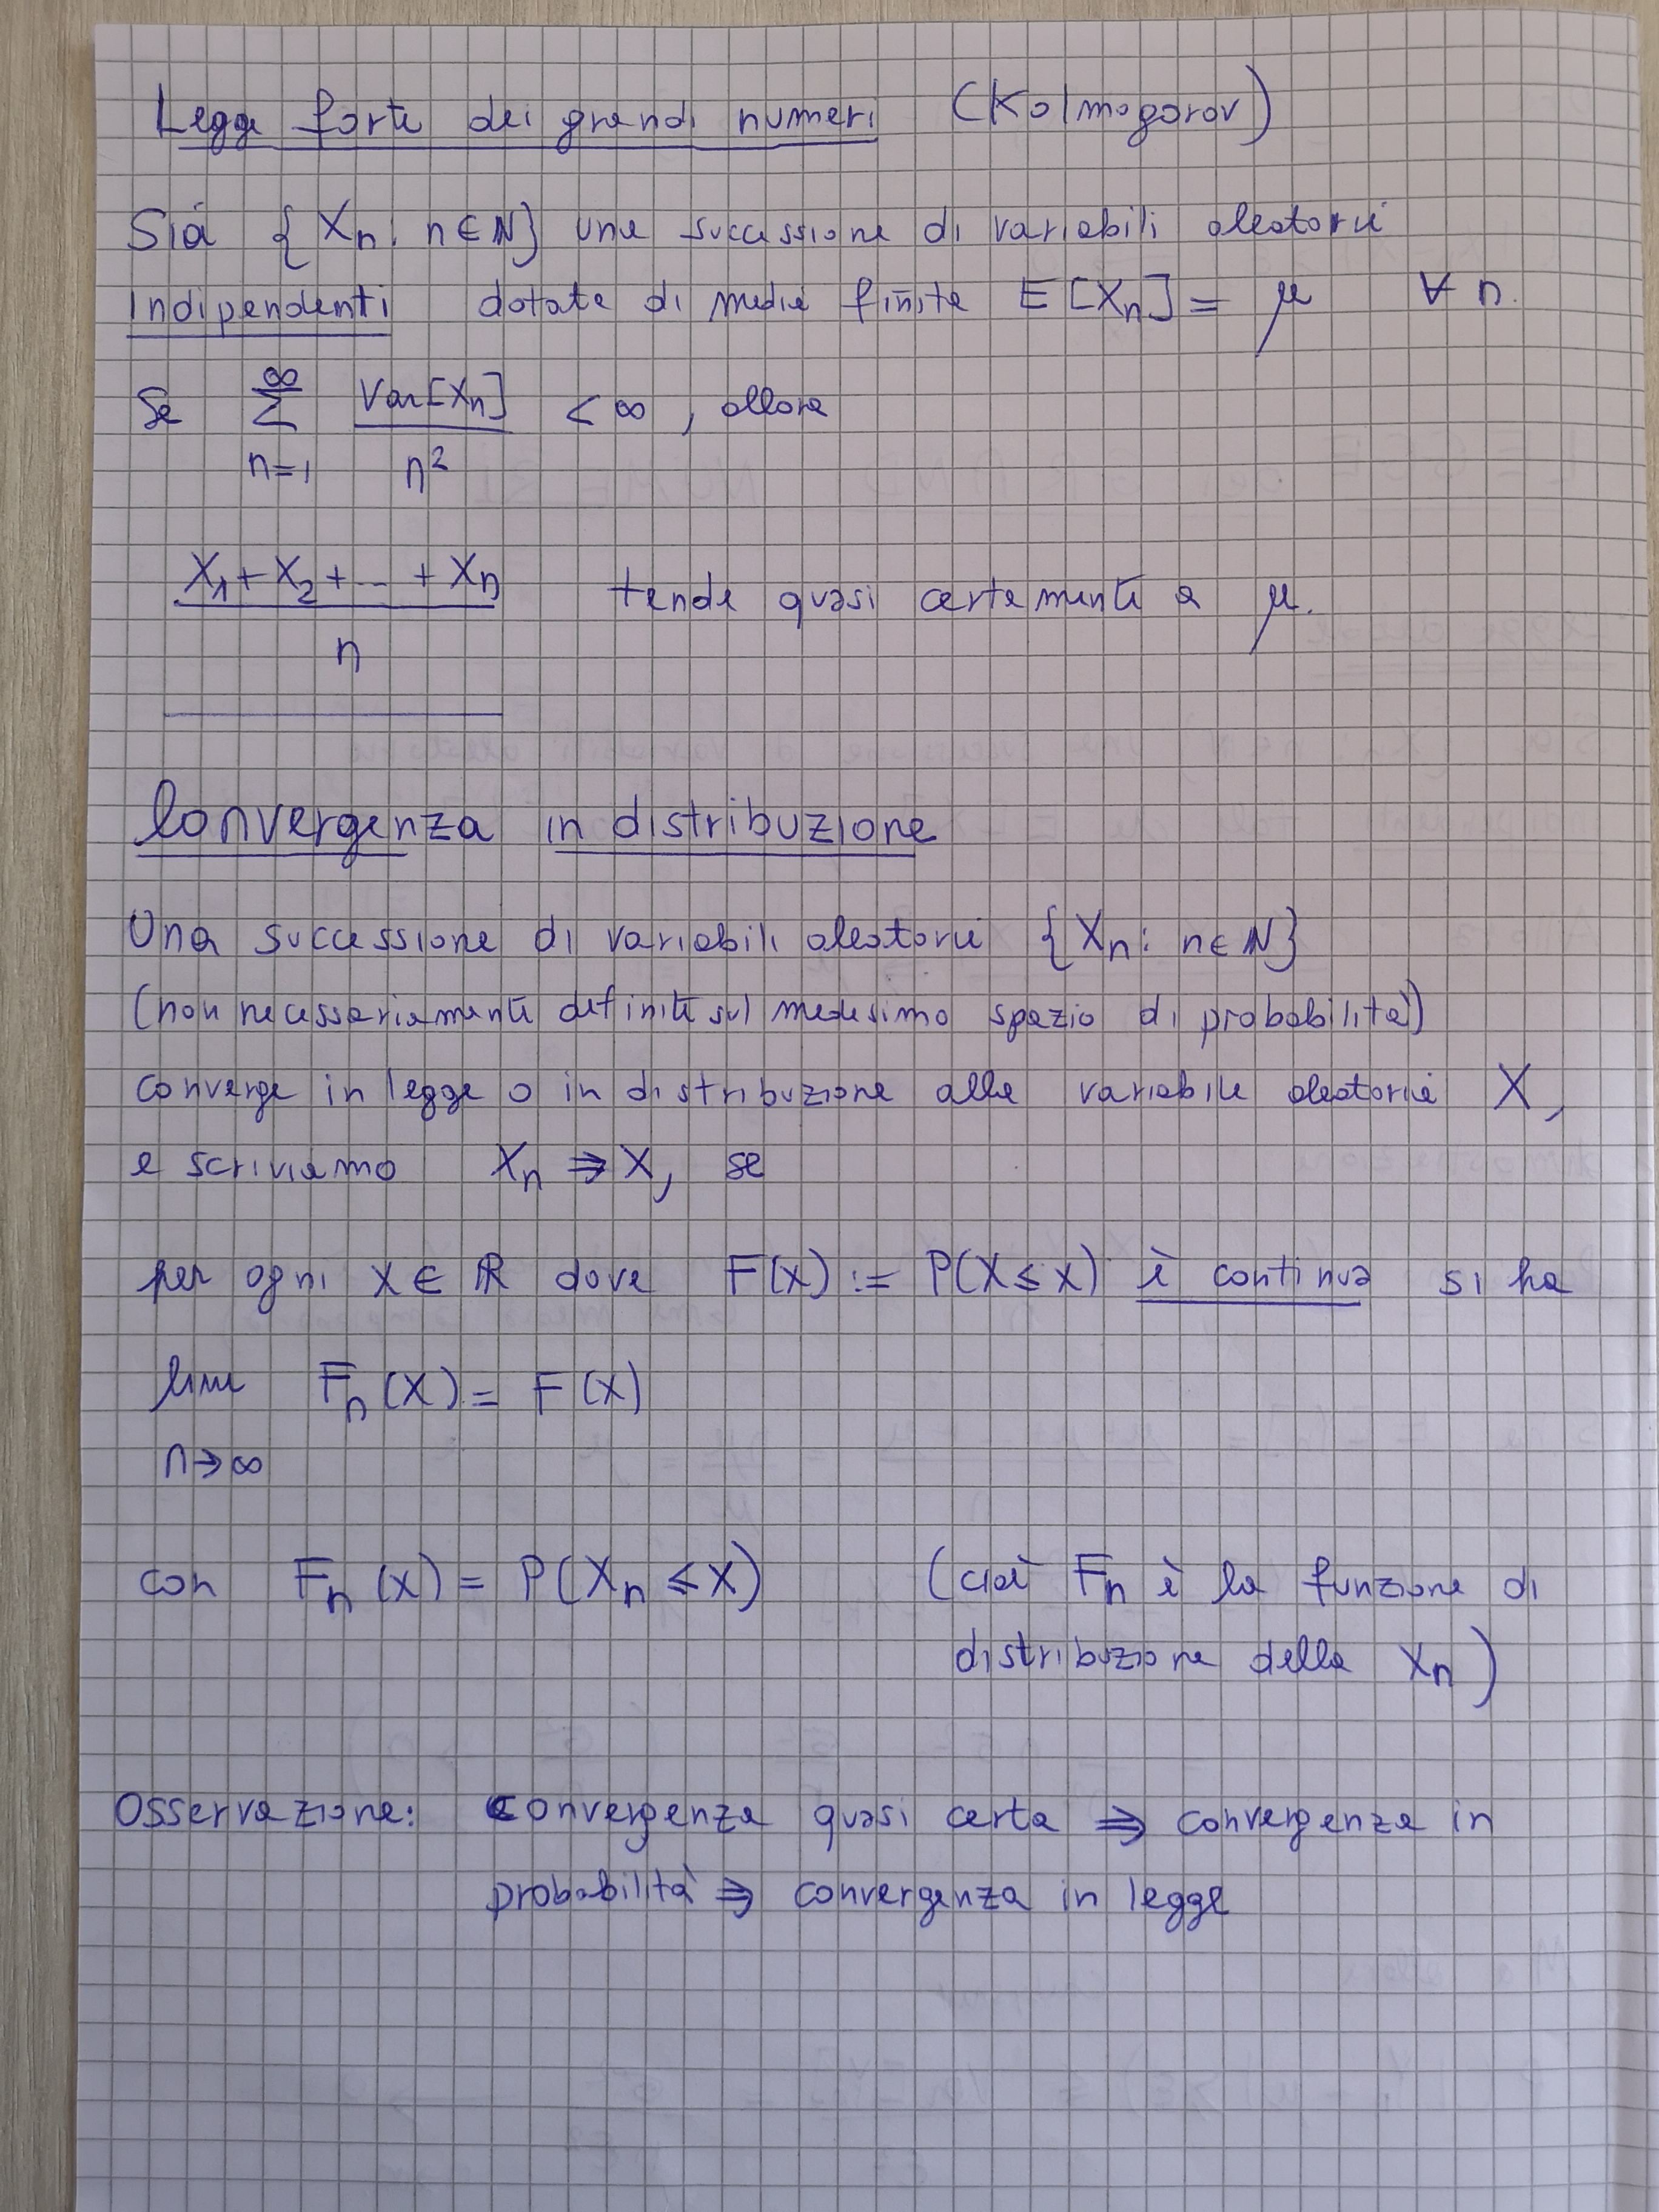 Legge forte dei grandi numeri (Kolmogorov)
Sia {Xn: n∈ℕ} una successione di variabili aleatorie
indipendenti dotate di media finita E[Xn] = μ ∀ n.
Se ∑_{n=1}^{∞} Var[Xn]/n² < ∞, allora
(X₁+X₂+...+Xn)/n tende quasi certamente a μ.
Convergenza in distribuzione
Una successione di variabili aleatorie {Xn: n∈ℕ}
(non necessariamente definite sul medesimo spazio di probabilità)
converge in legge o in distribuzione alla variabile aleatoria X,
e scriviamo Xn ⇒ X, se
per ogni x∈ℝ dove F(x) := P(X≤x) è continua si ha
lim Fn(x) = F(x)
n→∞
con Fn(x) = P(Xn ≤ x) (cioè Fn è la funzione di
distribuzione della Xn)
Osservazione: Convergenza quasi certa ⇒ convergenza in
probabilità ⇒ convergenza in legge